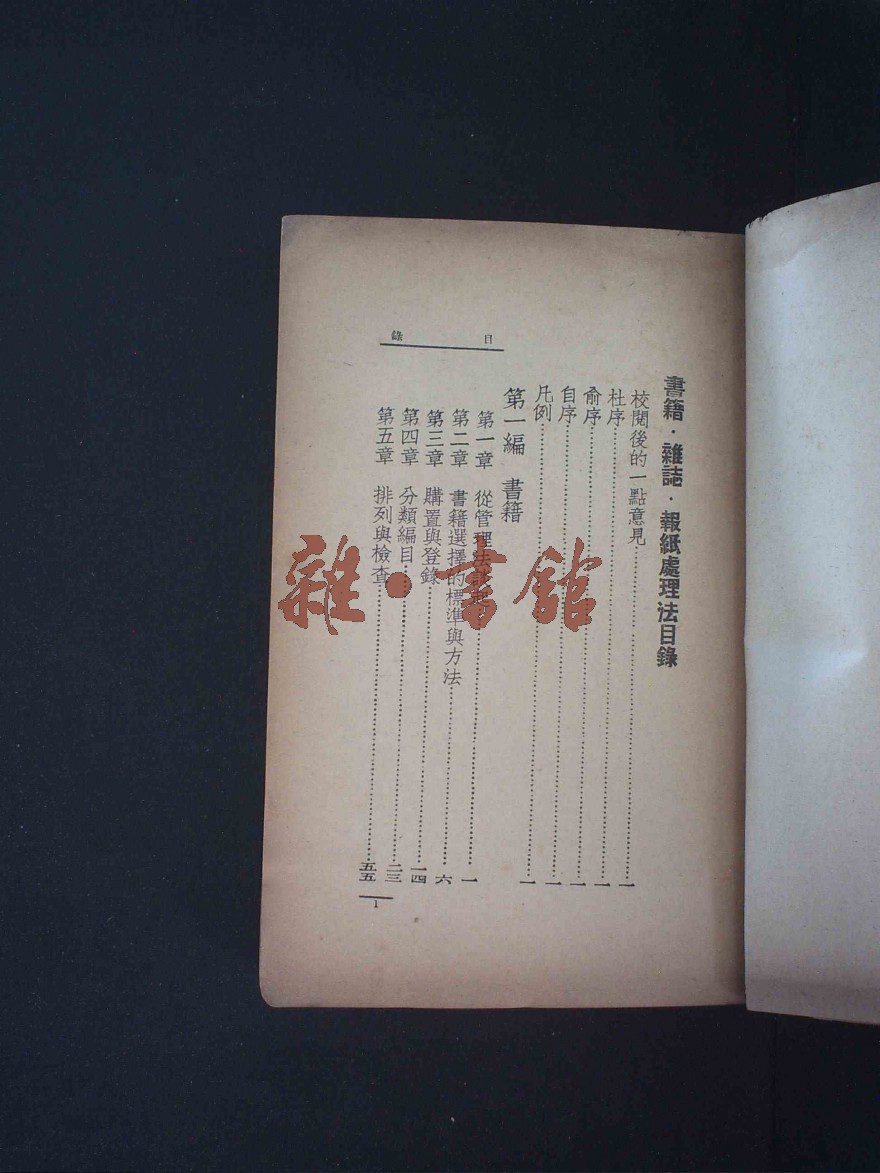 書籍·雜誌·報紙處理法目錄
校閱後的一點意見……一
杜序……一
俞序……一
自序……一
凡例……一
第一編 書籍
第一章 從管理法……一
第二章 書籍選擇的標準與方法……六
第三章 購置與登錄……一四
第四章 分類編目……二三
第五章 排列與檢查……五五
目錄
1
雜·書館